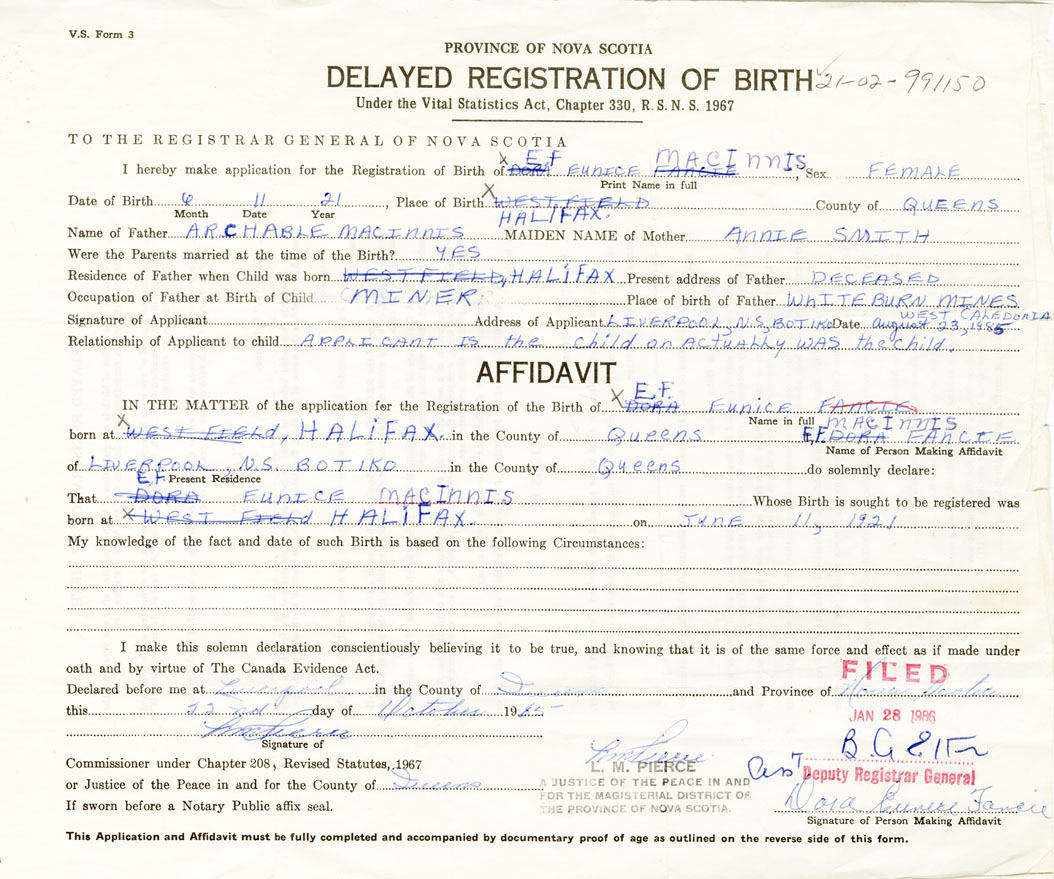 V.S. Form 3
PROVINCE OF NOVA SCOTIA
DELAYED REGISTRATION OF BIRTH 21-02-991150
Under the Vital Statistics Act, Chapter 330, R.S.N.S. 1967
TO THE REGISTRAR GENERAL OF NOVA SCOTIA
X E.F MACINNIS
I hereby make application for the Registration of Birth of DORA EUNICE FANCIE, Sex FEMALE
Print Name in full
Date of Birth 6 11 21, Place of Birth X WESTFIELD County of QUEENS
Month Date Year HALIFAX.
Name of Father ARCHABLE MACINNIS MAIDEN NAME of Mother ANNIE SMITH
Were the Parents married at the time of the Birth? YES
Residence of Father when Child was born WESTFIELD, HALIFAX Present address of Father DECEASED
Occupation of Father at Birth of Child MINER Place of birth of Father WHITEBURN MINES
WEST CALEDONIA
Signature of Applicant Address of Applicant LIVERPOOL, N.S, BOTIKO Date August 23, 1985
Relationship of Applicant to child APPLICANT IS the child or ACTUALLY WAS the child.
AFFIDAVIT
X E.F.
IN THE MATTER of the application for the Registration of the Birth of DORA EUNICE FANCIE
Name in full MACINNIS
born at X WEST FIELD, HALIFAX. in the County of Queens E.F. DORA FANCIE
Name of Person Making Affidavit
of LIVERPOOL, N.S. BOTIKO in the County of Queens do solemnly declare:
E.F. Present Residence
That DORA EUNICE MACINNIS Whose Birth is sought to be registered was
born at X WEST FIELD HALIFAX. on JUNE 11, 1921
My knowledge of the fact and date of such Birth is based on the following Circumstances:
I make this solemn declaration conscientiously believing it to be true, and knowing that it is of the same force and effect as if made under
oath and by virtue of The Canada Evidence Act.
FILED
Declared before me at Liverpool in the County of Queens and Province of Nova Scotia
this 22nd day of October 1985
JAN 28 1986
LM Pierce
Signature of
Commissioner under Chapter 208, Revised Statutes, 1967
LM Pierce
L. M. PIERCE
Asst Deputy Registrar General
or Justice of the Peace in and for the County of Queens
A JUSTICE OF THE PEACE IN AND
FOR THE MAGISTERIAL DISTRICT OF
THE PROVINCE OF NOVA SCOTIA.
If sworn before a Notary Public affix seal.
Dora Eunice Fancie
Signature of Person Making Affidavit
This Application and Affidavit must be fully completed and accompanied by documentary proof of age as outlined on the reverse side of this form.